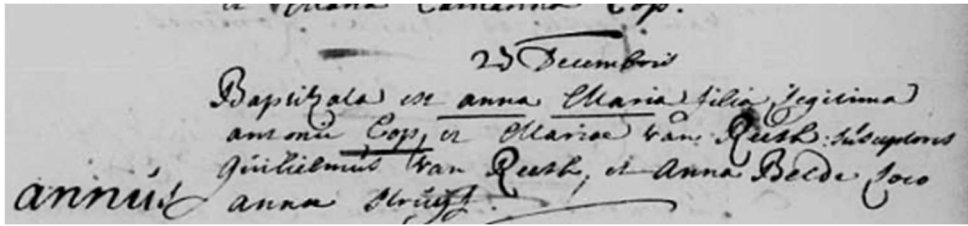 et Maria Catharina Cop.
23 Decembris
Baptizata est anna Maria filia legitima
antonii Cop, et Mariae van Reeth: susceptores
Guilielmus van Reeth, et Anna Beede loco
annus anna Struyf.